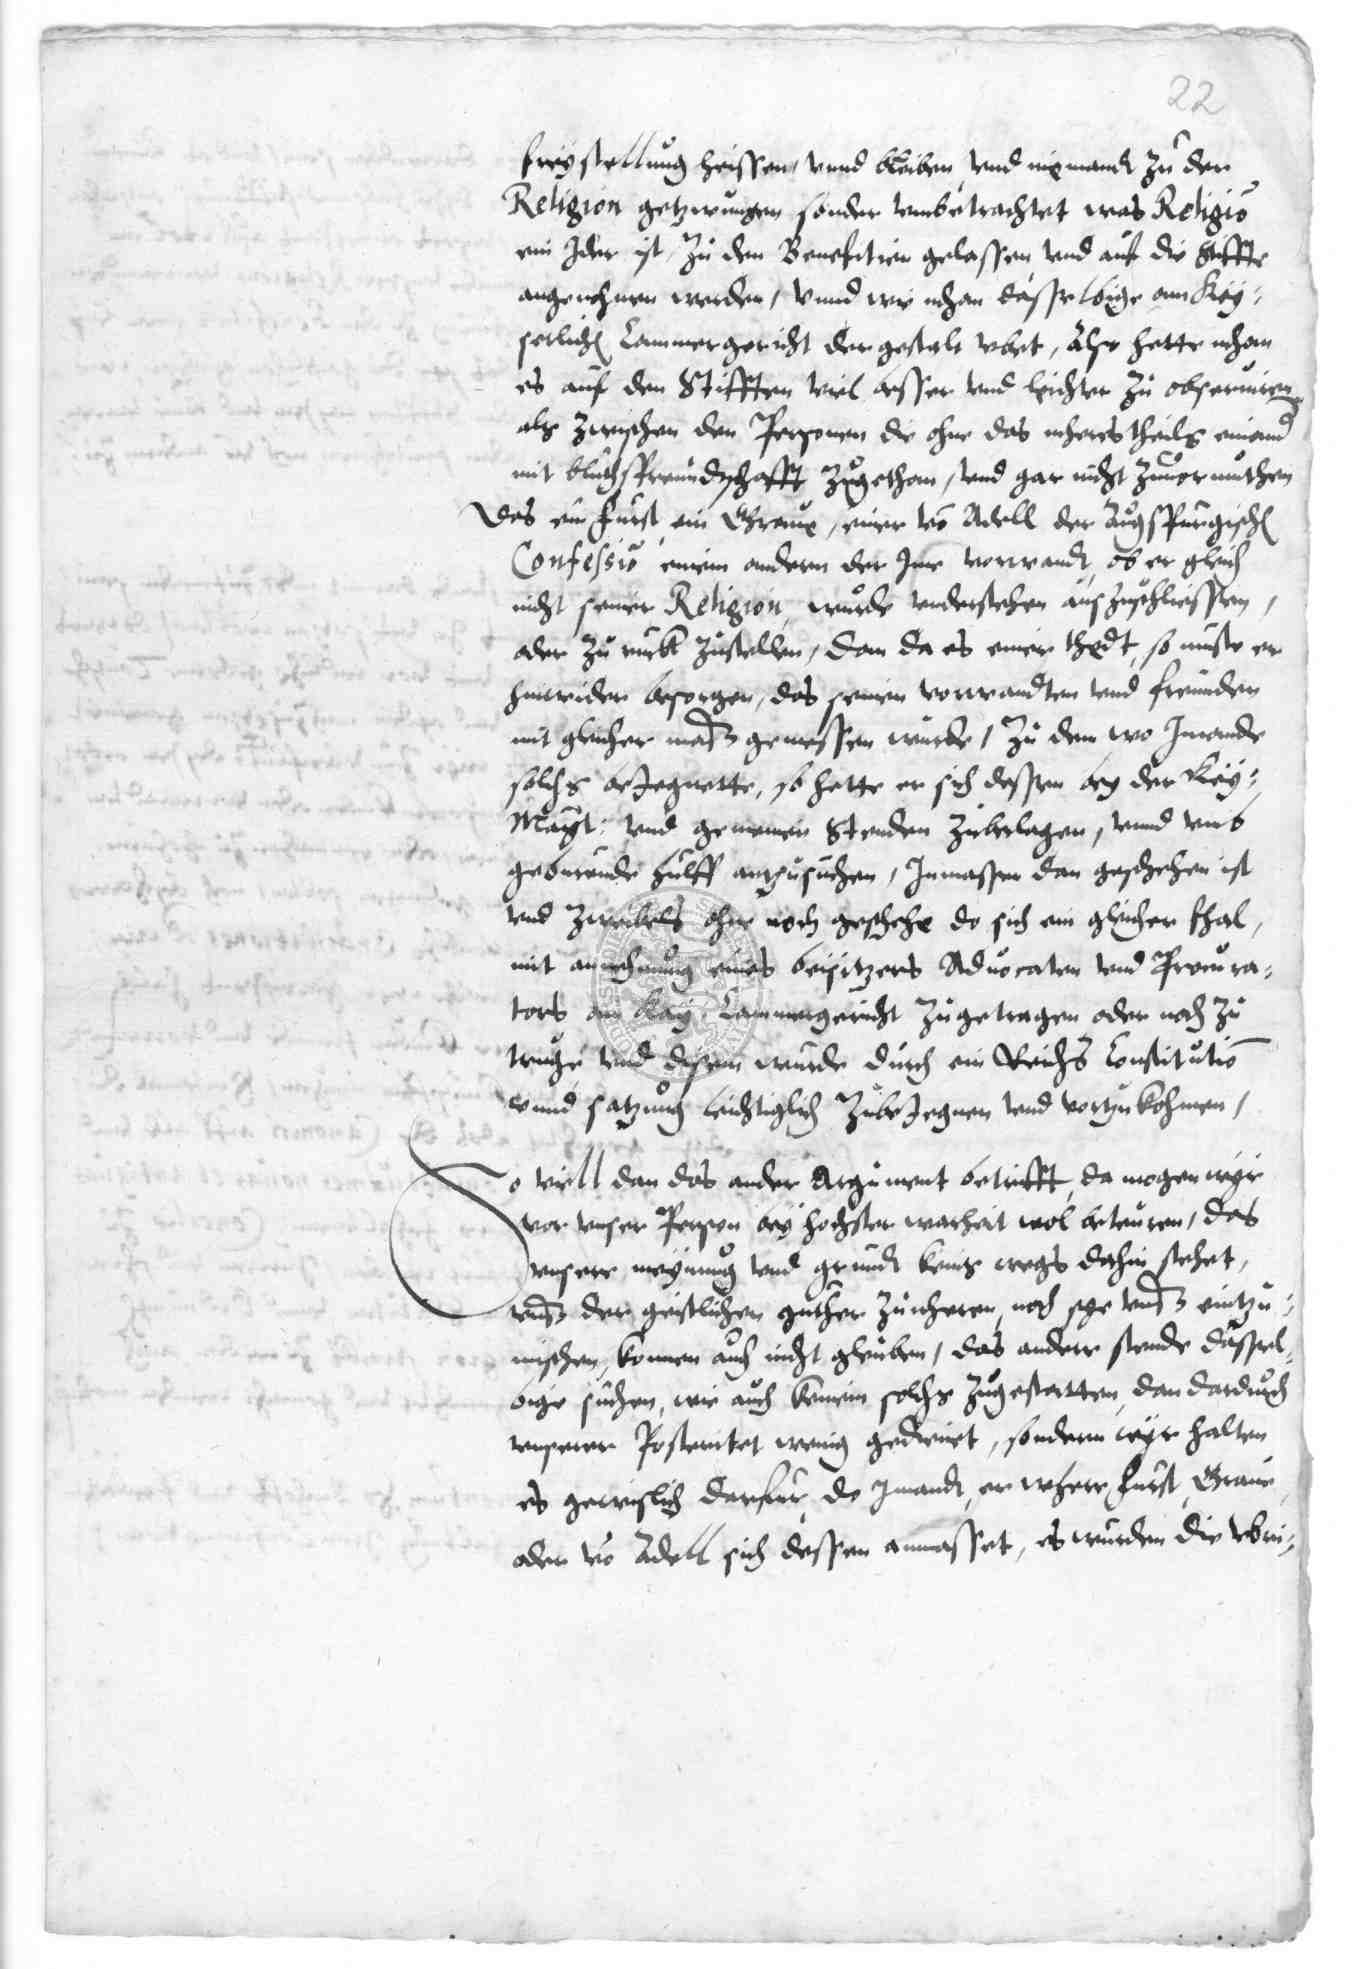 22
freystellung heissen, vnnd bleiben, vnd niemandt zu der
Religion getzwungen sonder vnbetrachtet was Religiō
ein Jder ist, zu den Benefitien gelassen vnd auf die Stiffte
angenohmen werden, vnnd wie mhan dasselbige am Key-
serlichen Cammergericht dergestalt vbet, Also hette mhan
es auf den Stifften viel besser vnd leichter zu obseruiren
als zwischen den Personen die ohne das mherestheils einand
mit blutsfreundschafft zugethan, vnd gar nicht zuuormuthen
Das ein Furst, ein Graue, einer vō Adell der Augspurgischen
Confessiō einem andern der Ime vorwandt, ob er gleich
nicht seiner Religion, wurde vnderstehen auszuschliessen,
oder zu ruck zustellen, dan da es einer thedt, so muste er
hinwider besorgen, das seinen vorwandten vnd freunden
mit gleicher mass gemessen wurde, Zu dem wo Jmande
solchs beJegnette, so hette er sich dessen bey der Key:
Mayt: vnd gemeinen Stenden zubeklagen, vnnd vmb
geburende hulff anzusuchen, Inmassen dan geschehen ist
vnd zweiuels ohne noch geschehe do sich ein gleicher fhal,
mit annehmung eines beisitzers Aduocaten vnd Procura-
tors am Kay: Cammergericht zugetragen oder noch zu
truge vnd disem wurde durch ein Reichs Constitutiō
vnnd satzung leichtiglich zubeJegnen vnd vortzukohmen,
So viell dan das ander Argument betrifft, da mogen wyr
vor vnser Person bey hochster warheit wol beteuren, das
vnsere meynung vnd grundt keins wegs dahin stehet,
vnss der geistlichen guther zunheren, noch sye vnss eintzu-
mischen, konnen auch nicht gleuben, das andere stende dassel-
bige suchen, wie auch keinem solchs zugestatten, dan dardurch
vnserer Posteritet wenig gedienet, sondern wyr halten
es gewislich darfur, do Jmandt, er where Furst, Graue,
oder vō Adell sich dessen anmasset, es wurden die vbri-